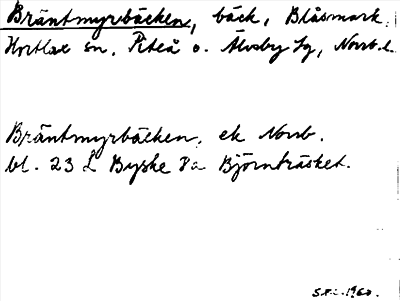 Bräntmyrbäcken, bäck, Blåsmark,
Hortlax sn, Piteå o. Älvsby tg, Norrb. l.
Bräntmyrbäcken, ek Norrb.
bl. 23 L Byske 8a Björnträsket.
1960.